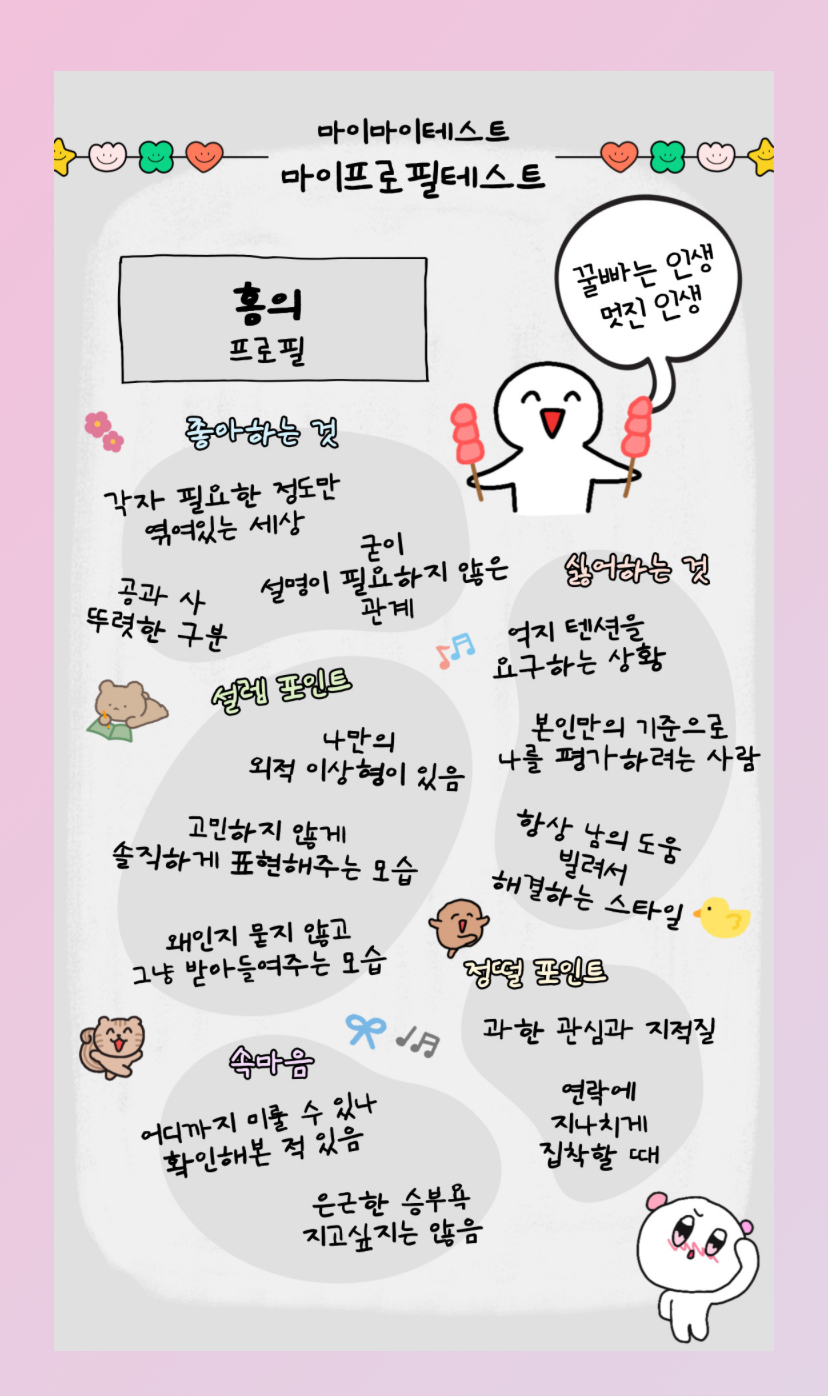 마이마이테스트
마이프로필테스트
꿀빠는 인생
멋진 인생
홍의
프로필
좋아하는 것
각자 필요한 정도만
엮여있는 세상
굳이
설명이 필요하지 않은
관계
공과 사
뚜렷한 구분
싫어하는 것
억지 텐션을
요구하는 상황
본인만의 기준으로
나를 평가하려는 사람
항상 남의 도움
빌려서
해결하는 스타일
설렘 포인트
나만의
외적 이상형이 있음
고민하지 않게
솔직하게 표현해주는 모습
왜인지 묻지 않고
그냥 받아들여주는 모습
정떨 포인트
과한 관심과 지적질
연락에
지나치게
집착할 때
속마음
어디까지 미룰 수 있나
확인해본 적 있음
은근한 승부욕
지고싶지는 않음